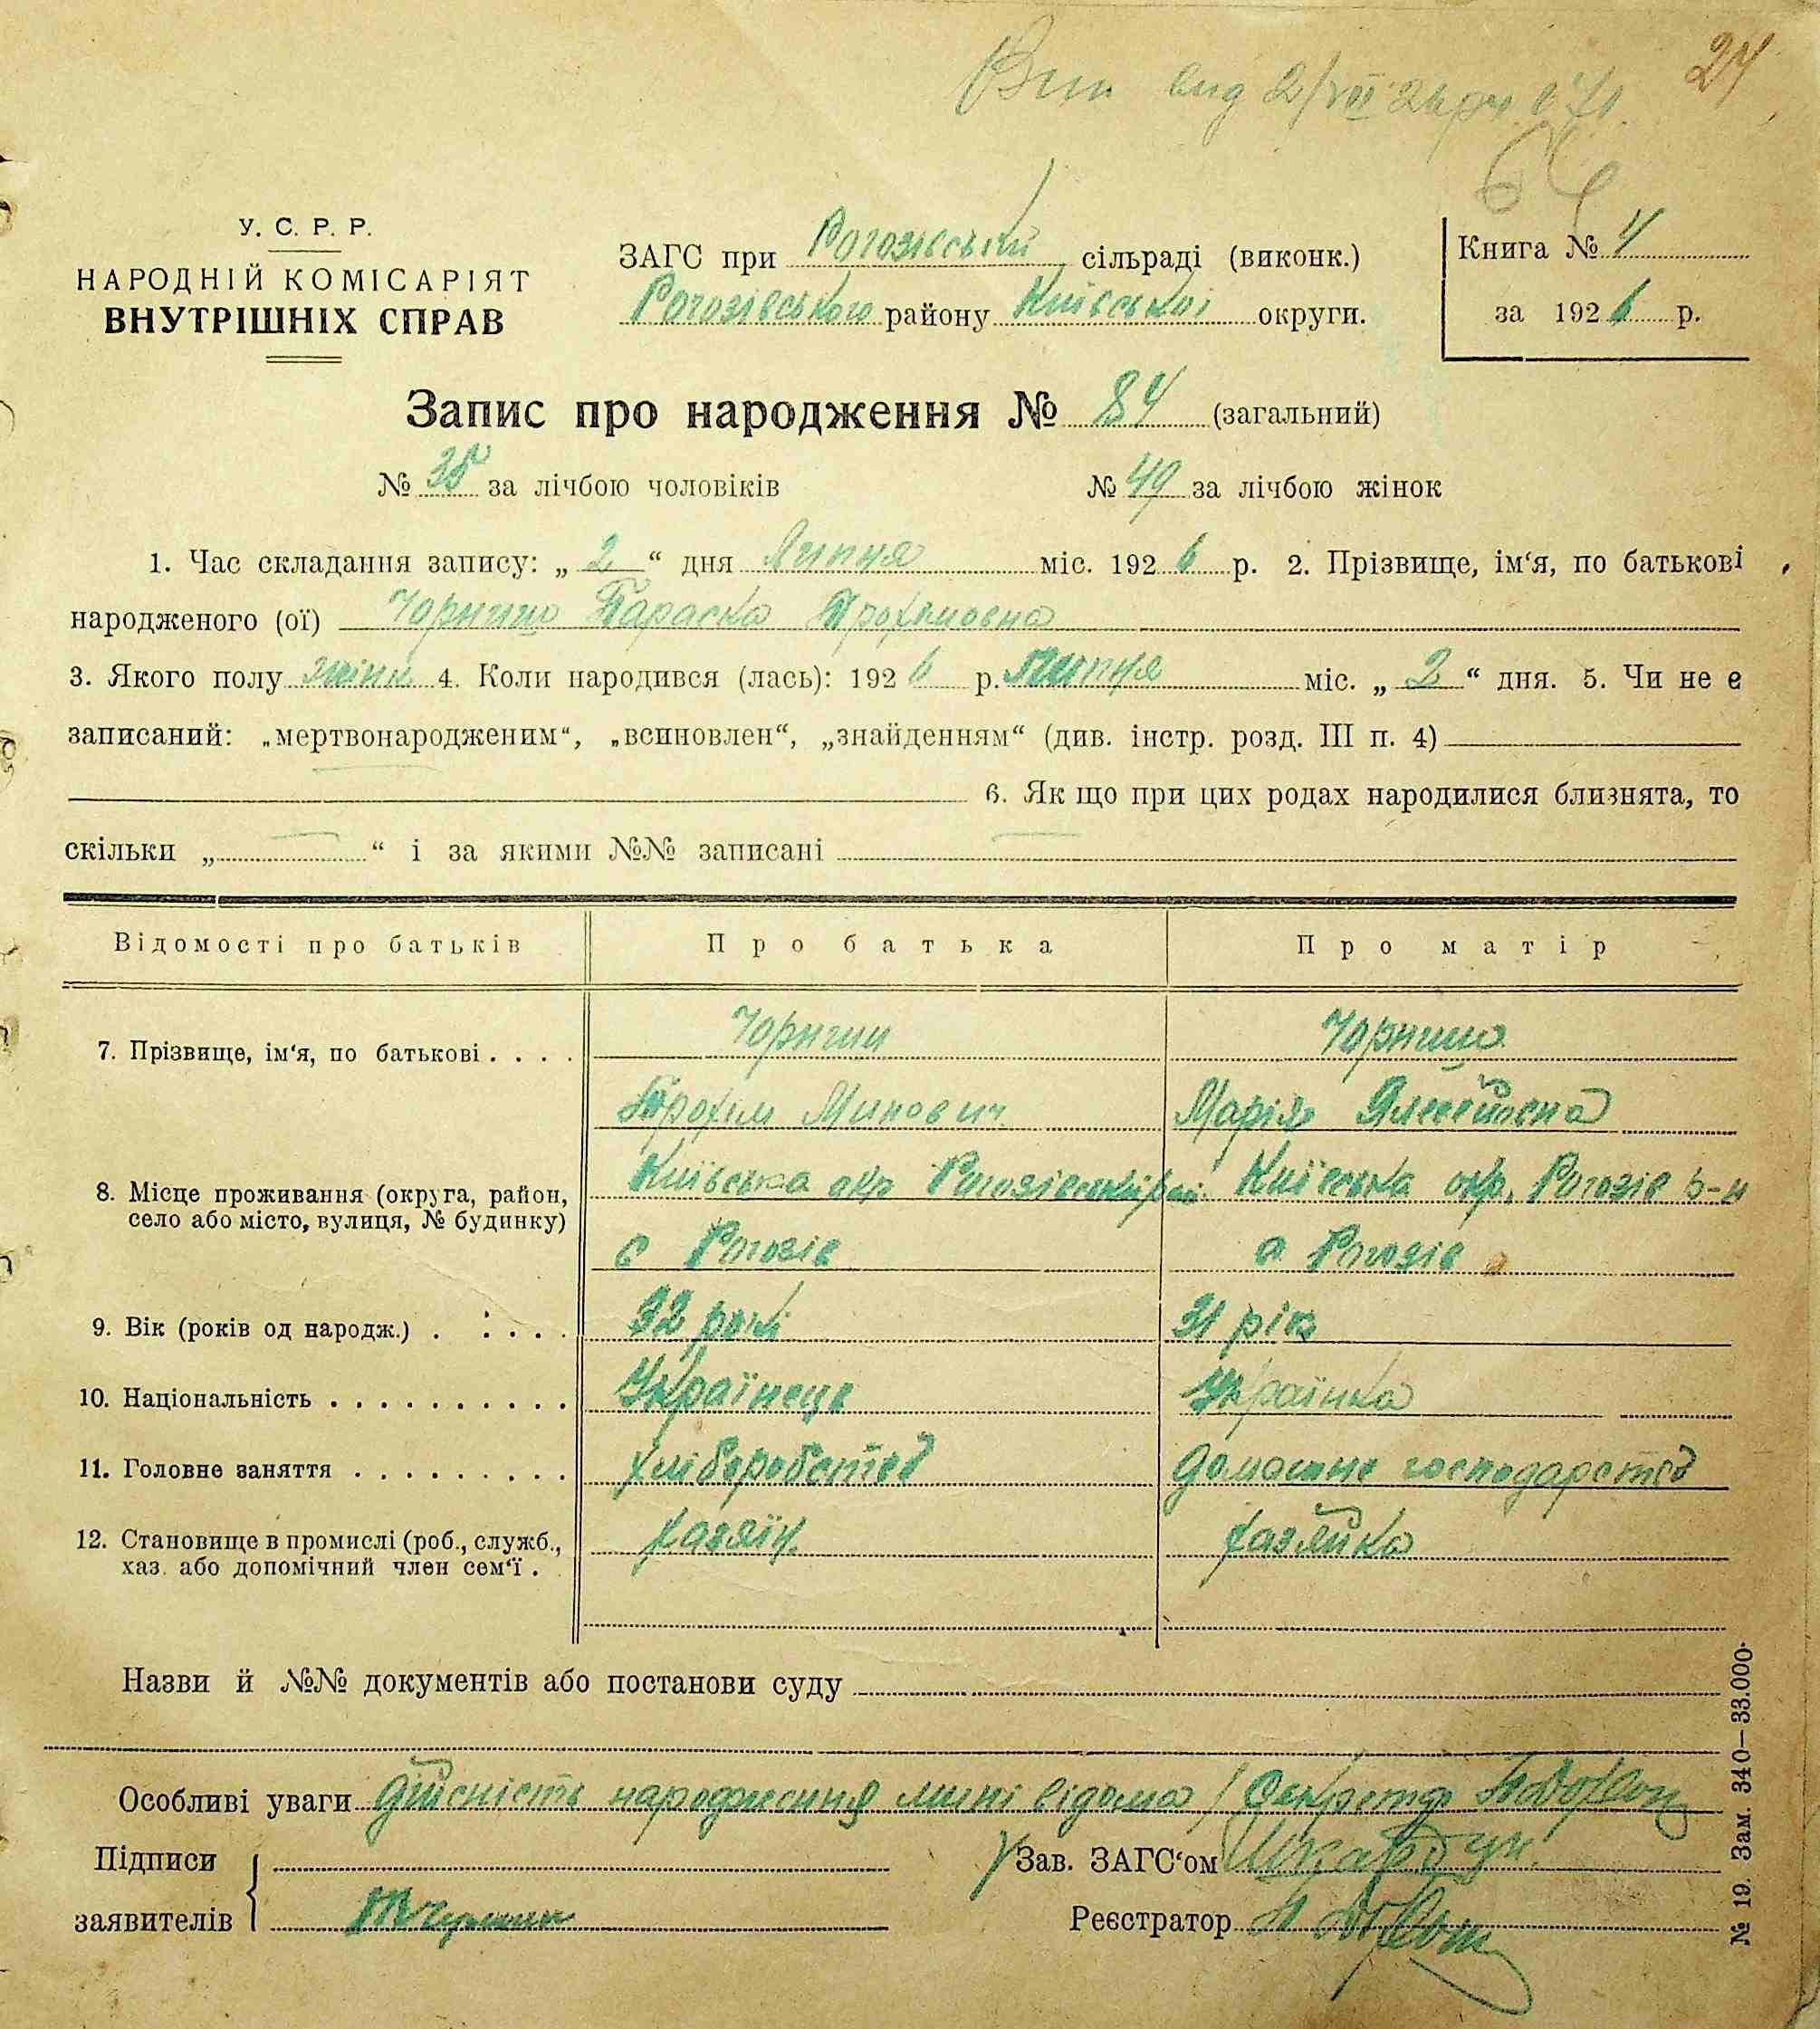 24
Вип вид 2/VII 26
64
У. С. Р. Р.
НАРОДНІЙ КОМІСАРІЯТ
ВНУТРІШНІХ СПРАВ
ЗАГС при Рогозівській сільраді (виконк.)
Рогозівського району Київської округи.
Книга № 4
за 1926 р.
Запис про народження № 84 (загальний)
№ 35 за лічбою чоловіків № 49 за лічбою жінок
1. Час складання запису: „ 2 “ дня Липня міс. 1926 р. 2. Прізвище, ім‘я, по батькові
народженого (ої) Чорниш Параска Прохимовна
3. Якого полу жіни 4. Коли народився (лась): 1926 р. Липня міс. „ 2 “ дня. 5. Чи не є
записаний: „мертвонародженим“, „всиновлен“, „знайденням“ (див. інстр. розд. III п. 4)
6. Як що при цих родах народилися близнята, то
скільки „ “ і за якими №№ записані
Відомості про батьків Про батька Про матір
7. Прізвище, ім‘я, по батькові . . . . Чорниш Чорниш
Прохим Минович Марія Алексеівна
8. Місце проживання (округа, район, село або місто, вулиця, № будинку) Київська окр Рогозівський рай. Київська окр. Рогозів р-н
с Рогозів с. Рогозів
9. Вік (років од народж.) . . . . . 32 рокі 31 рік
10. Національність . . . . . . . . . . Українець Українка
11. Головне заняття . . . . . . . . . хліборобство домашнє господарство
12. Становище в промислі (роб., служб., хаз. або допомічний член сем‘ї . хазяїн. хазяйка
Назви й №№ документів або постанови суду
Особливі уваги Дійсність народження мині відома / Секретар
Підписи
заявителів
Зав. ЗАГС‘ом
Реєстратор
№ 19. Зам. 340—33.000.